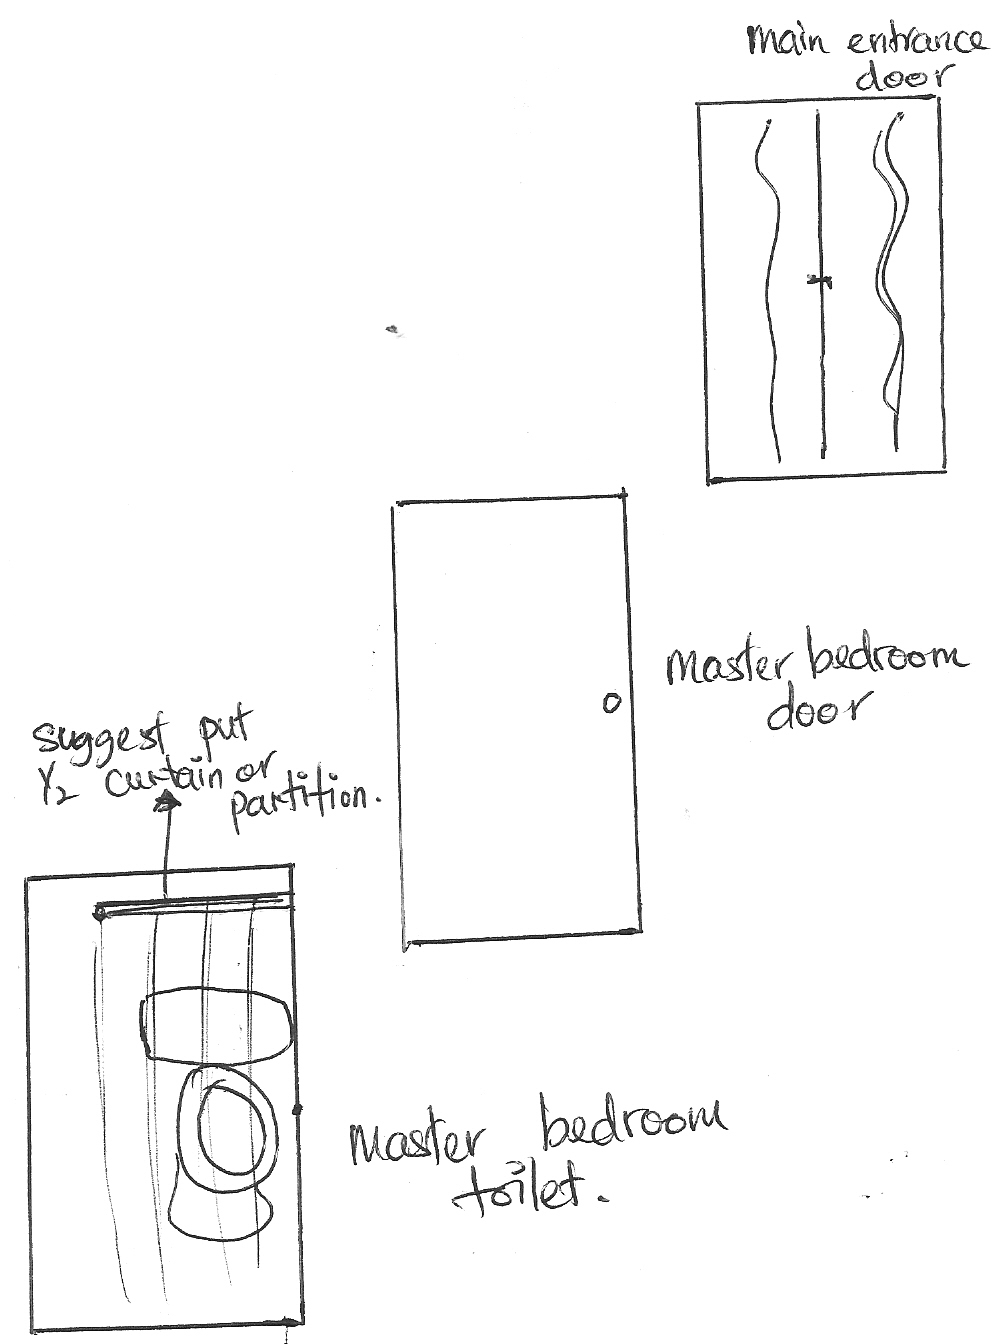 main entrance
door
master bedroom
door
suggest put
1/2 curtain or
partition.
master bedroom
toilet.